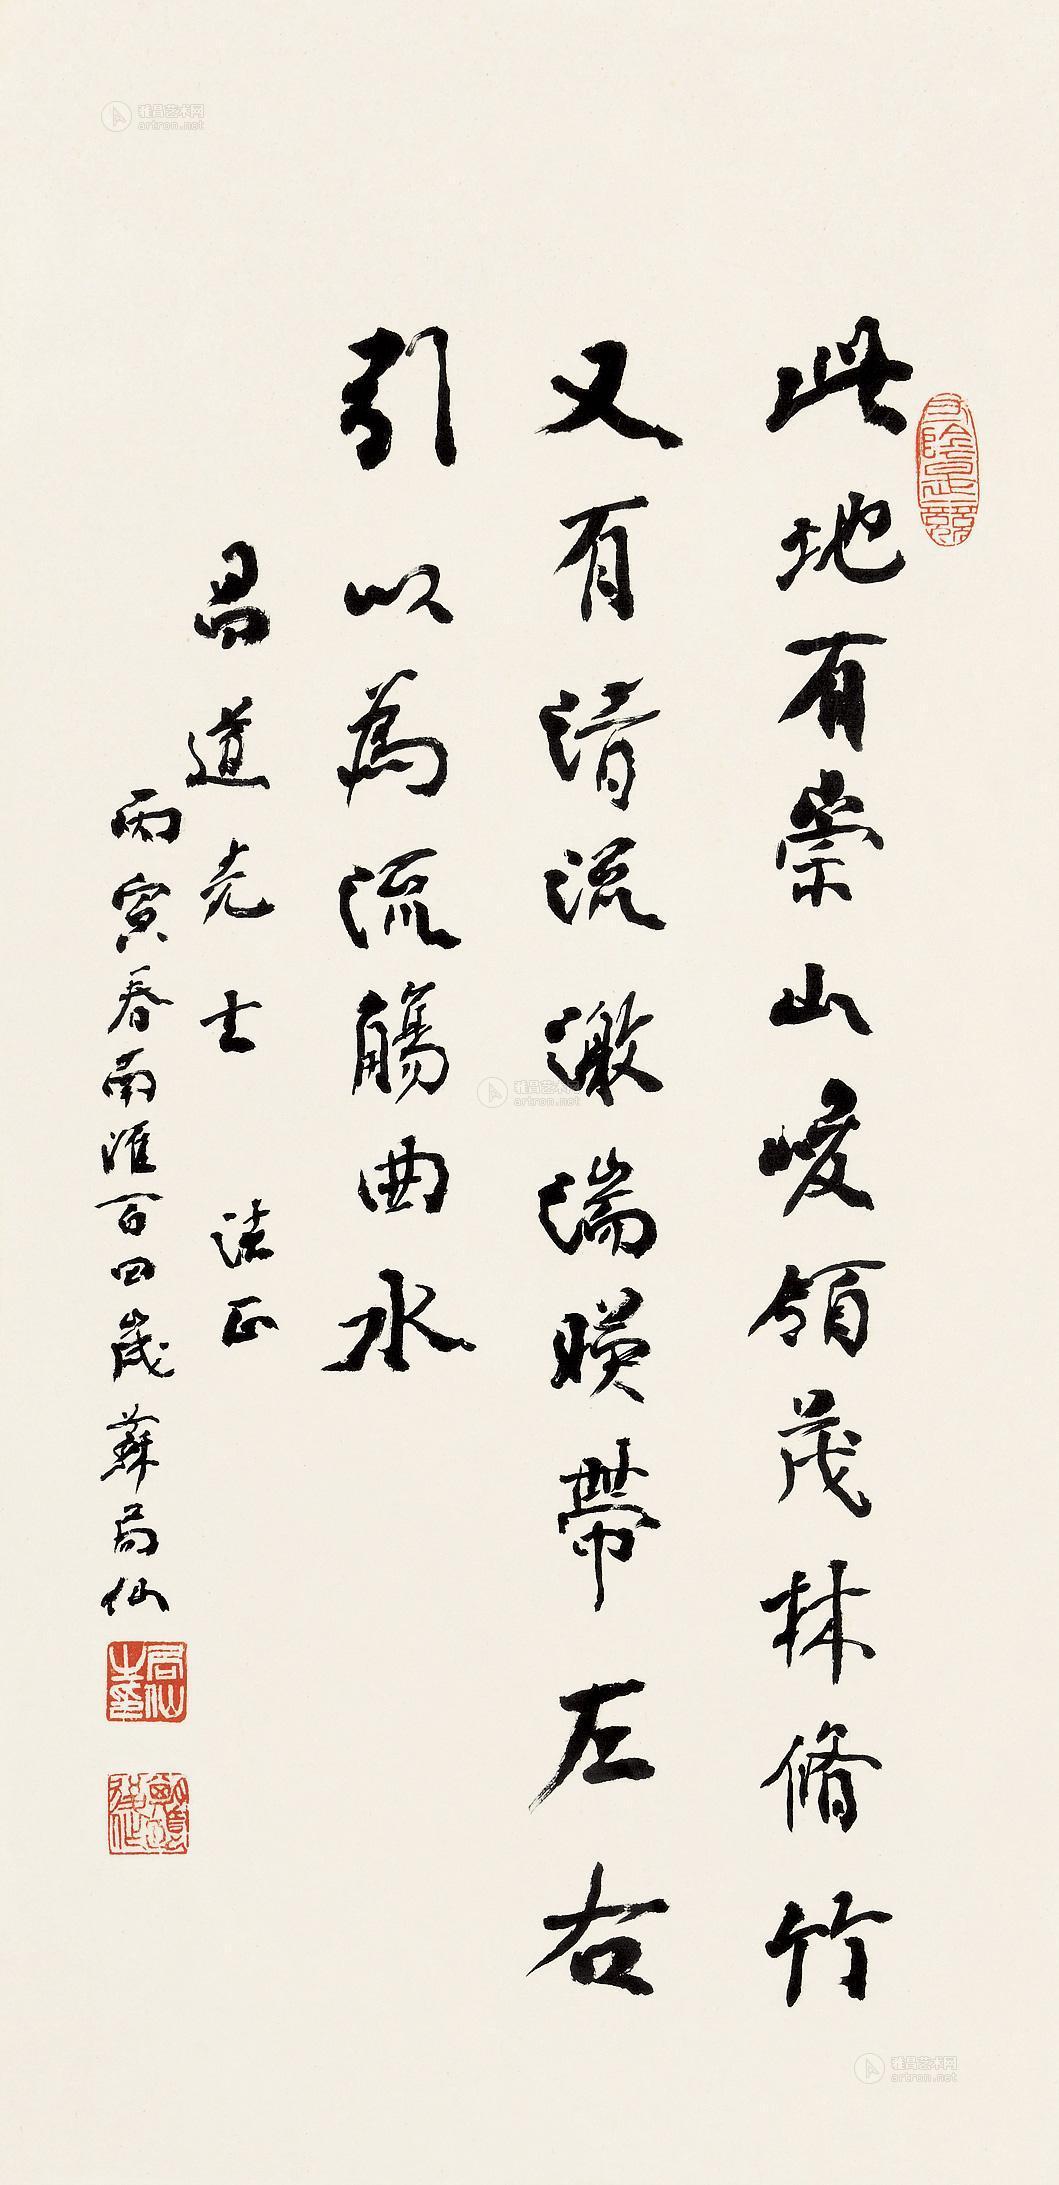 此地有崇山峻領茂林脩竹
又有清流激湍暎帶左右
引以為流觴曲水
昌道先士 法正
丙寅春南滙百四歲蘇局仙
局仙之印
雅昌艺术网
artron.net
雅昌艺术网
artron.net
雅昌艺术网
artron.net